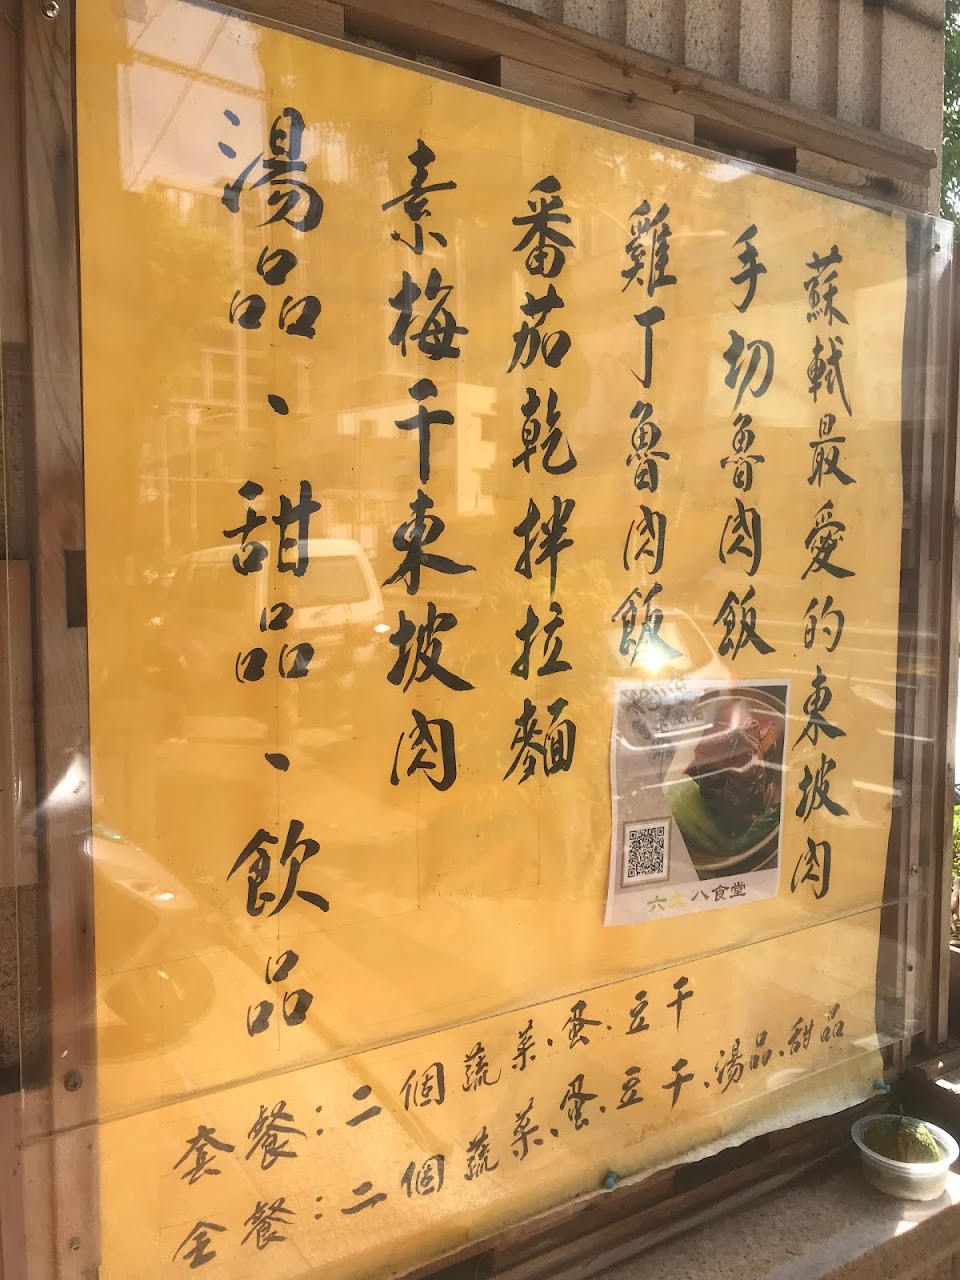 蘇軾最愛的東坡肉
手切魯肉飯
雞丁魯肉飯
番茄乾拌拉麵
素梅干東坡肉
湯品、甜品、飲品
六九八食堂
套餐：二個蔬菜、蛋、豆干
全餐：二個蔬菜、蛋、豆干、湯品、甜品